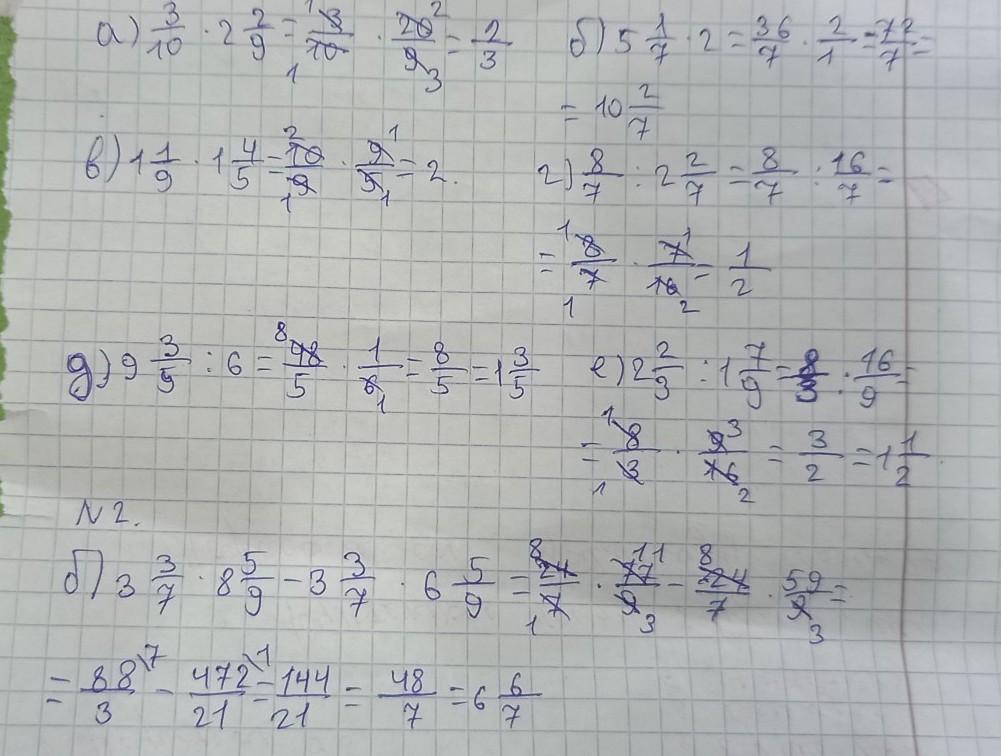 а) 3/10 · 2 2/9 = 3/10 · 20/9 = 2/3
б) 5 1/7 · 2 = 36/7 · 2/1 = 72/7 =
= 10 2/7
в) 1 1/9 · 1 4/5 = 10/9 · 9/5 = 2.
г) 8/7 : 2 2/7 = 8/7 : 16/7 =
= 8/7 · 7/16 = 1/2
д) 9 3/5 : 6 = 48/5 · 1/6 = 8/5 = 1 3/5
е) 2 2/3 : 1 7/9 = 8/3 : 16/9 =
= 8/3 · 9/16 = 3/2 = 1 1/2.
N 2.
б) 3 3/7 · 8 5/9 - 3 3/7 · 6 5/9 = 24/7 · 77/9 - 24/7 · 59/9 =
= 88/3 - 472/21 = 144/21 = 48/7 = 6 6/7